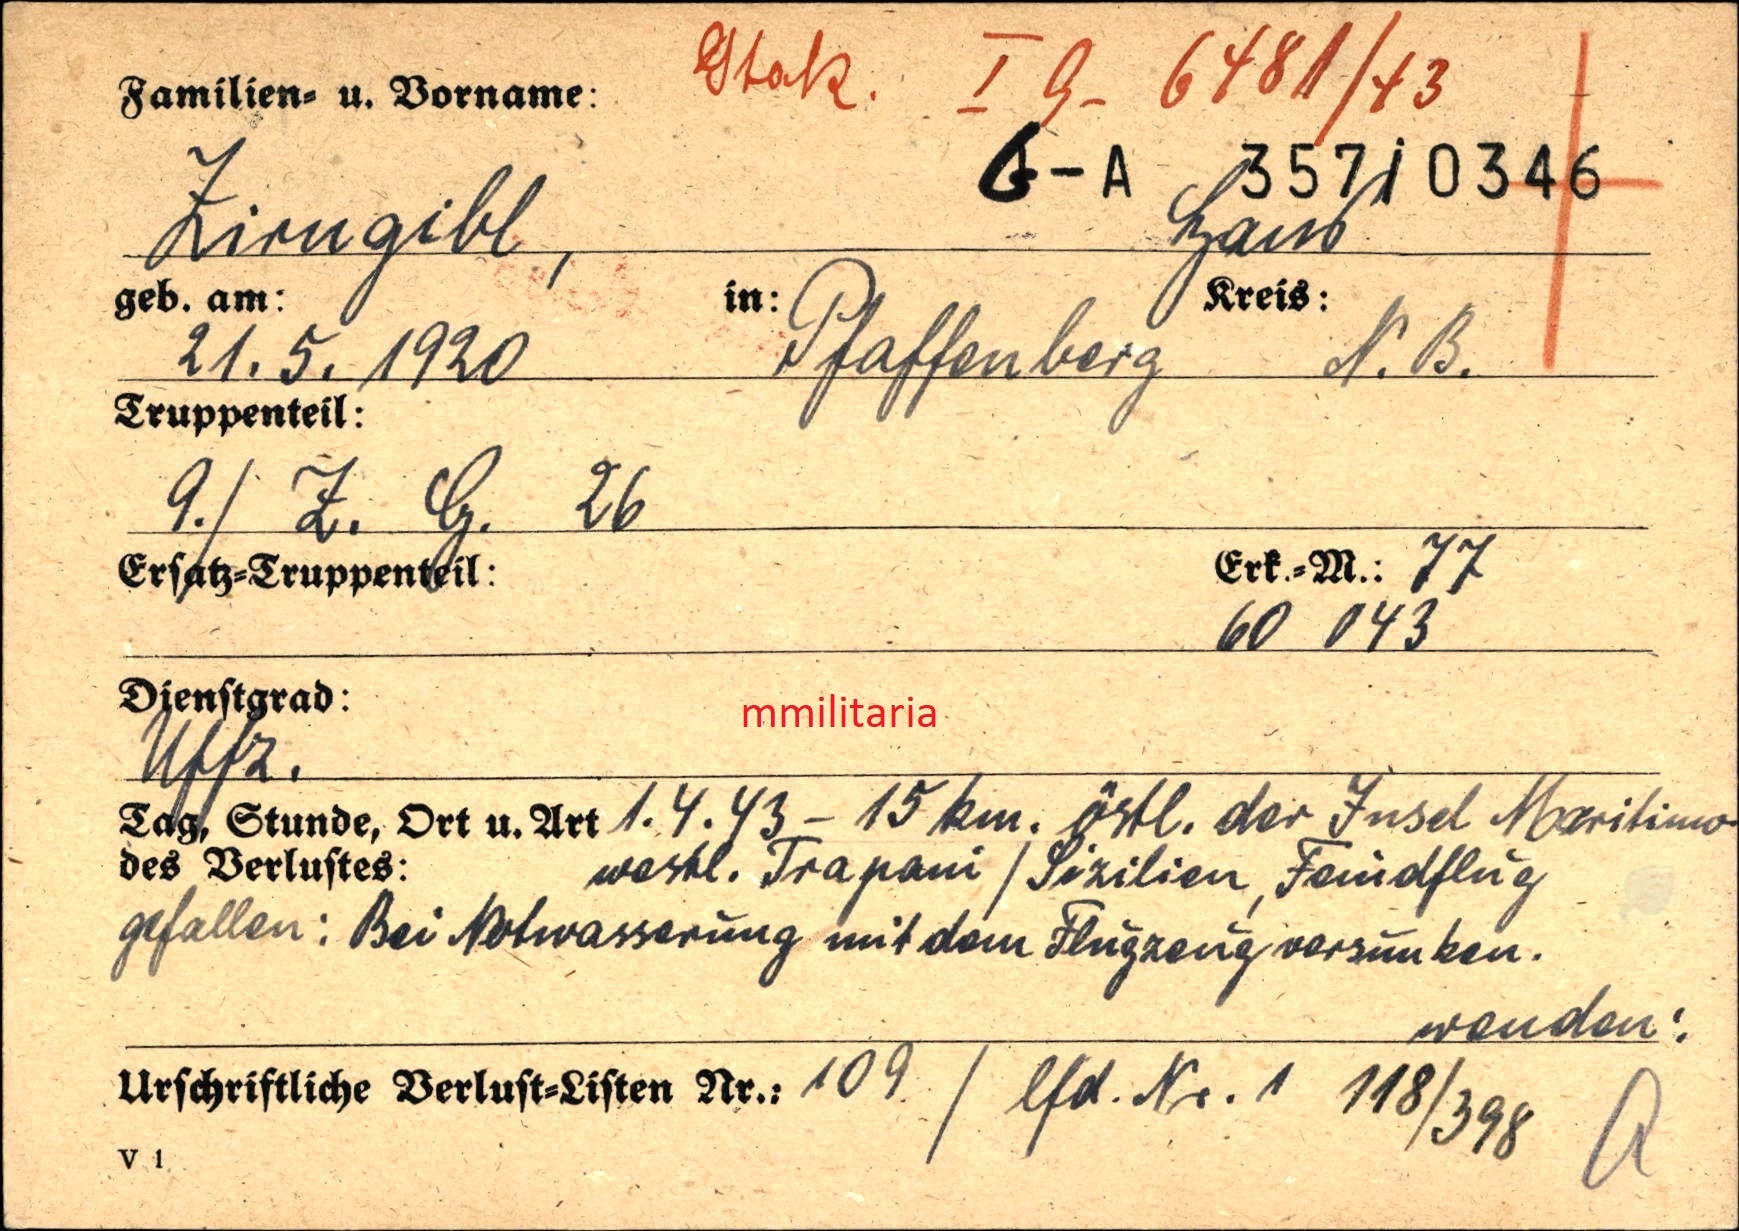 Stak. I G - 6481/43
Familien- u. Vorname:
G-A 357/0346
Zirngibl, Hans
geb. am: in: Kreis:
21. 5. 1920 Pfaffenberg N. B.
Truppenteil:
9./ Z. G. 26
Ersatz-Truppenteil: Erk.-M.: 77
60 043
Dienstgrad:
mmilitaria
Uffz.
Tag, Stunde, Ort u. Art 1.4.43 - 15 km. östl. der Insel Maritimo
des Verlustes: westl. Trapani / Sizilien, Feindflug
gefallen: Bei Notwasserung mit dem Flugzeug versunken.
wenden!
Urschriftliche Verlust-Listen Nr.: 109 / lfd. Nr. 1 118/398
V 1